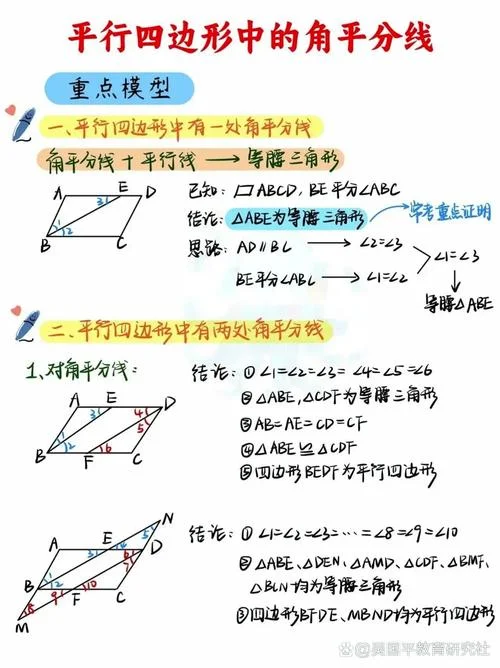 平行四边形中的角平分线
重点模型
一、平行四边形中有一处角平分线
角平分线+平行线→等腰三角形
A E D
3
1
2
B C
已知:▱ABCD,BE平分∠ABC
结论:△ABE为等腰三角形 常考重点证明
思路:AD∥BC→∠2=∠3
BE平分∠ABC→∠1=∠2
∠1=∠3
等腰△ABE
二、平行四边形中有两处角平分线
1、对角平分线:
A E D
3 4
5
1
2 6
B F C
结论:①∠1=∠2=∠3=∠4=∠5=∠6
②△ABE,△CDF为等腰三角形
③AB=AE=CD=CF
④△ABE≌△CDF
⑤四边形BEDF为平行四边形
N
5
A E D
3 4 6
7
1
2
B F C
9 10
8
M
结论:①∠1=∠2=∠3=…=∠8=∠9=∠10
②△ABE、△DEN、△AMD、△CDF、△BMF、
△BCN均为等腰三角形
③四边形BFDE、MBND均为平行四边形
@吴国平教育研究社